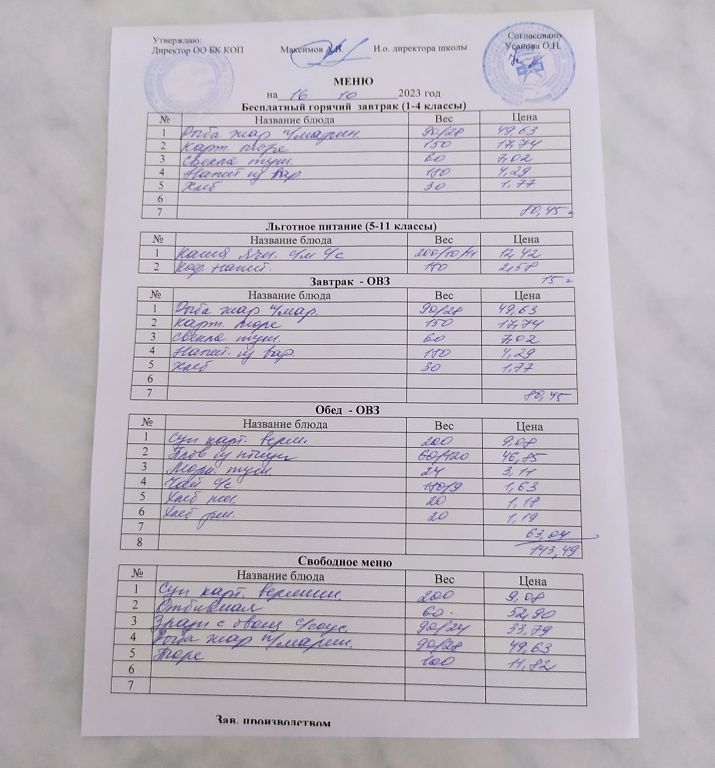 Утверждаю: Согласовано
Директор ОО БК КОП Максимов А.В. И.о. директора школы Усанова О.Н.
МЕНЮ
на 16 10 2023 год
Бесплатный горячий завтрак (1-4 классы)
№ Название блюда Вес Цена
1 Рыба жар п/марин. 90/28 49,63
2 Карт. пюре 150 17,74
3 Свекла туш. 60 7,02
4 Напит из вар 180 4,29
5 Хлеб 30 1,77
6
7 80,45
Льготное питание (5-11 классы)
№ Название блюда Вес Цена
1 Каша ячн. с/м с/с 200/10/11 12,42
2 Коф. напит. 180 2,58
15
Завтрак - ОВЗ
№ Название блюда Вес Цена
1 Рыба жар п/мар. 90/28 49,63
2 Карт. пюре 150 17,74
3 Свекла туш. 60 7,02
4 Напит. из вар 180 4,29
5 Хлеб 30 1,77
6
7 80,45
Обед - ОВЗ
№ Название блюда Вес Цена
1 Суп карт. верм. 200 9,08
2 Плов из птицы 60/120 46,85
3 Морк. туш 24 3,11
4 Чай с/с 180/9 1,63
5 Хлеб пш. 20 1,18
6 Хлеб рж. 20 1,19
7 63,04
8 143,49
Свободное меню
№ Название блюда Вес Цена
1 Суп карт. вермиш. 200 9,08
2 Отбивная 60. 52,90
3 Зразы с овощ с/соус. 90/24 33,79
4 Рыба жар п/марин. 90/28 49,63
5 Пюре 100 11,82
6
7
Зав. производством